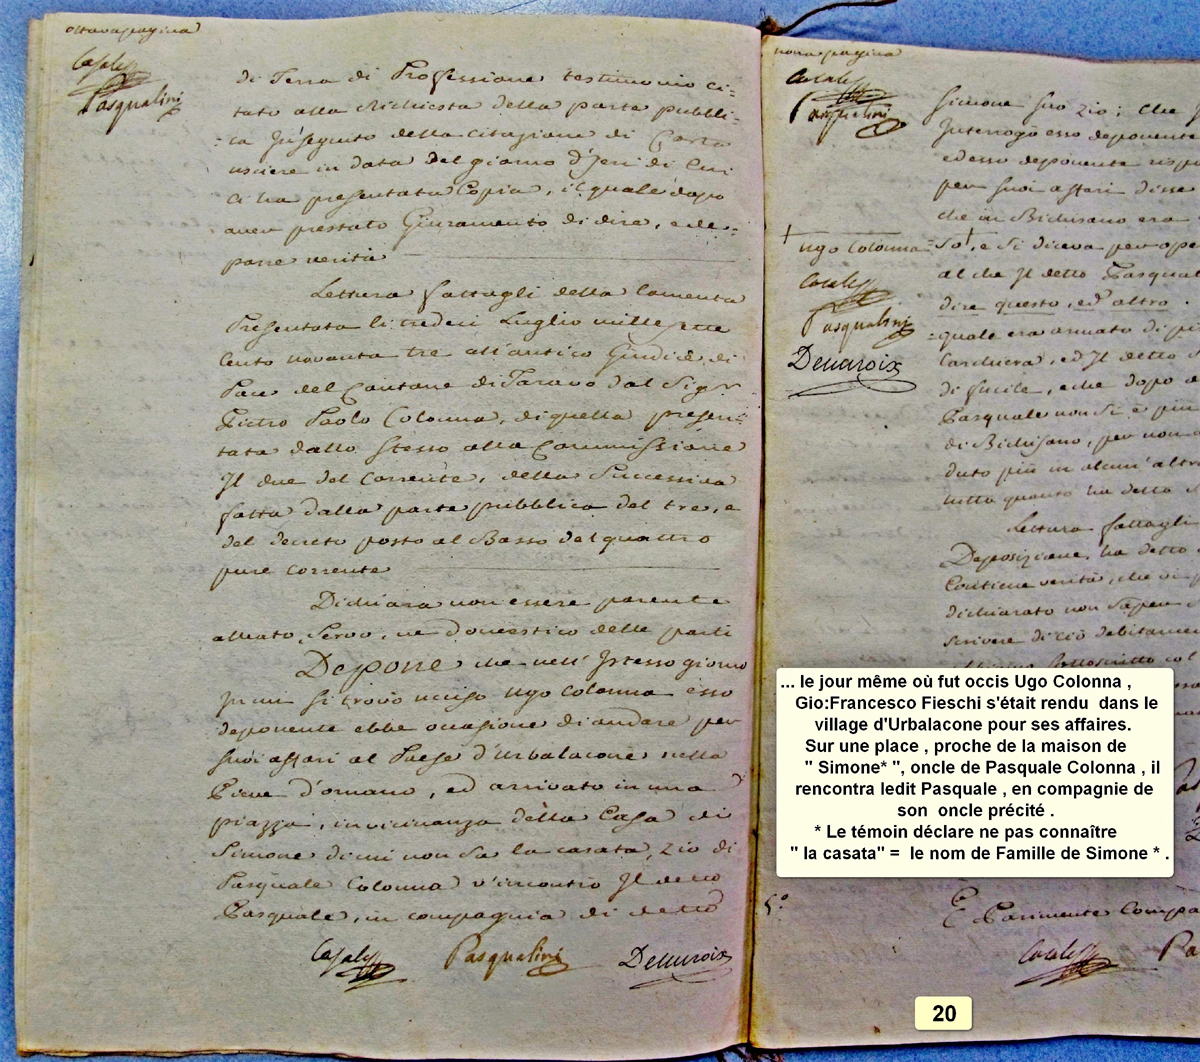 ottava pagina
Casale
Pasqualini
di Terra di Professione testimonio ci=
tato alla Richiesta della parte pubbli=
=ca In seguito della citazione di Carta
usciere in data del giorno d'Jeri di Cui
ci ha presentata Copia, il quale dopo
aver prestato Giuramento di dire, e de=
porre verità
Lettura fattagli della lamenta
Presentata li tredeci Luglio mille sette
Cento novanta tre all'antico Giudice di
Pace del Cantone di Taravo dal Sigr
Pietro Paolo Colonna, di quella presen=
tata dallo stesso alla Commissione
Il due del Corrente, della Successiva
fatta dalla parte pubblica del tre, e
del decreto posto al Basso del quattro
pure corrente
Dichiara non essere parente
alleato, Servo, ne domestico delle parti
Depone che nell'Istesso giorno
In cui si trovò ucciso Ugo Colonna esso
deponente ebbe occasione di andare per
suoi affari al Paese d'Urbalacone nella
Pieve d'ornano, ed arrivato in una
piazza, in vicinanza della Casa di
Simone di cui non sa la casata, zio di
Pasquale Colonna v'incontrò Il detto
Pasquale, in compagnia di detto
Casale Pasqualini Demurois
nona pagina
Casale
Pasqualini
Simone suo zio; Che
Interrogò esso deponente
ed esso deponente
per suoi affari disse
che in Bichisano era
+ Ugo Colonna
=so+, e si diceva per ope
Casale
al che Il detto Pasqual
Pasqualini
dire questo, ed altro.
Demurois
quale era armato di
Carchiera, ed Il detto S
di fucile, e che dopo
Pasquale non si è più
di Bichisano, per non
duto più in alcun'altro
tutto quanto ha detto
Lettura fattagli
Deposizione, ha detto
Contiene verità, che vi
dichiarato non Saper
scrivere di ciò debitamen
sottoscritto col
... le jour même où fut occis Ugo Colonna ,
Gio:Francesco Fieschi s'était rendu dans le
village d'Urbalacone pour ses affaires.
Sur une place , proche de la maison de
" Simone* ", oncle de Pasquale Colonna , il
rencontra ledit Pasquale , en compagnie de
son oncle précité .
* Le témoin déclare ne pas connaître
" la casata" = le nom de Famille de Simone * .
5°
E Parimente Compa
Casale Pa
20